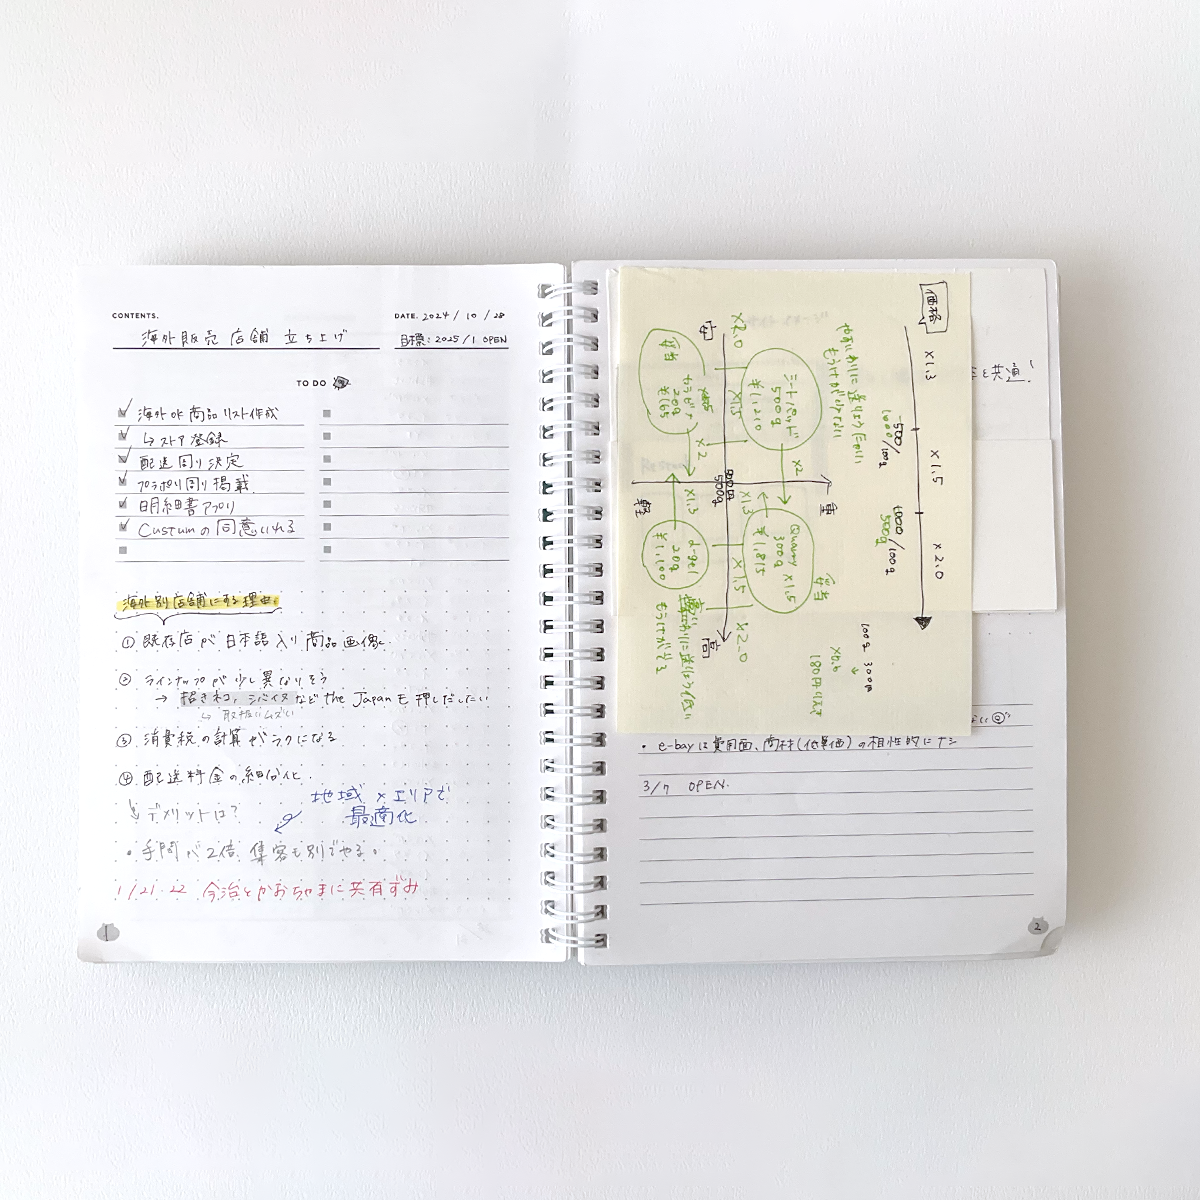 CONTENTS.
DATE. 2024 / 10 / 28
海外販売店舗 立ち上げ
目標：2025/1 OPEN
TO DO
海外ok商品リスト作成
↳ストア登録
配送周り決定
プラポリ周り掲載
明細書アプリ
Custumの同意いれる
海外別店舗にする理由。
① 既存店が日本語入り商品画像
② ラインナップが少し異なりそう
→ 招きネコ、シバイヌなど the Japanも押しだしたい
↳ 取扱いムズい
③ 消費税の計算がラクになる
④ 配送料金の細分化.
地域×エリアで
最適化
↳ デメリットは？
・手間が2倍、集客も別でやる。
1/21.22 今治とかおちゃまに共有ずみ
1
価格
×1.3
×1.5
×2.0
-500/100g
1,000/
500g
1000/100g
100g 300円
↓
×0.6
180円
もうけが
×2.0
安
シートパッド
500g
¥1,210
×1.5
弁当
20g
¥165
×2
×2
重
軽
500g
×1.3
×1.3
Quarry ×1.5
300g
¥1,815
弁当
α-gel
20g
¥1,100
×1.5
×2.0
高
と共通！
・e-bayは費用面、商材(低単価)の相性的にナシ
3/7 OPEN.
2